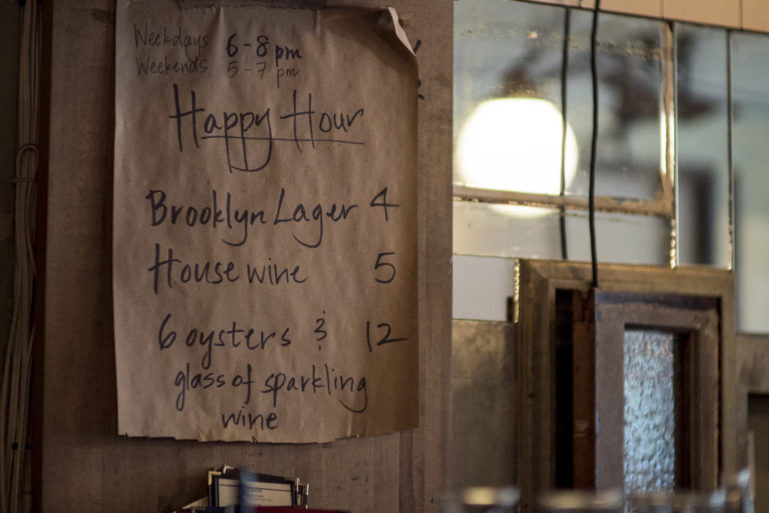 Weekdays 6-8 pm
Weekends 5-7 pm
Happy Hour
Brooklyn Lager 4
House wine 5
6 oysters & 12
glass of sparkling
wine